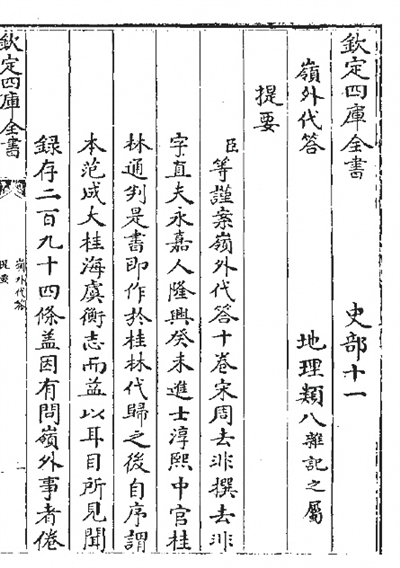 欽定四庫全書　史部十一
嶺外代答　地理類八雜記之屬
提要
臣等謹案嶺外代答十卷宋周去非撰去非
字直夫永嘉人隆興癸未進士淳熙中官桂
林通判是書即作於桂林代歸之後自序謂
本范成大桂海虞衡志而益以耳目所見聞
録存二百九十四條盖因有問嶺外事者倦
欽定四庫全書
嶺外代答
提要
一